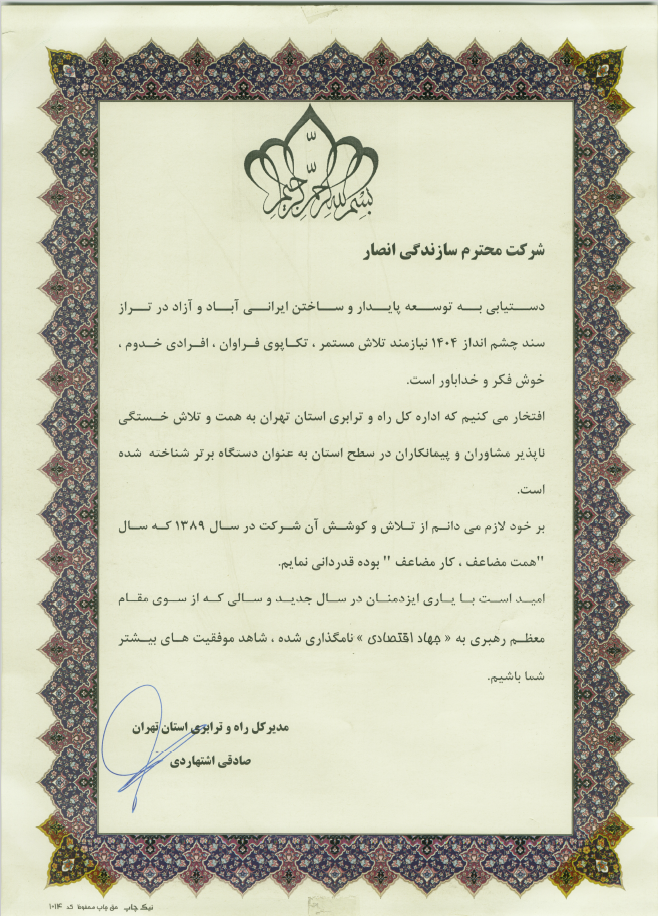 بسم الله الرحمن الرحیم
شرکت محترم سازندگی انصار
دستیابی به توسعه پایدار و ساختن ایرانی آباد و آزاد در تراز
سند چشم انداز ۱۴۰۴ نیازمند تلاش مستمر ، تکاپوی فراوان ، افرادی خدوم ،
خوش فکر و خداباور است.
افتخار می کنیم که اداره کل راه و ترابری استان تهران به همت و تلاش خستگی
ناپذیر مشاوران و پیمانکاران در سطح استان به عنوان دستگاه برتر شناخته شده
است.
بر خود لازم می دانم از تلاش و کوشش آن شرکت در سال ۱۳۸۹ که سال
"همت مضاعف ، کار مضاعف " بوده قدردانی نمایم.
امید است با یاری ایزدمنان در سال جدید و سالی که از سوی مقام
معظم رهبری به « جهاد اقتصادی » نامگذاری شده ، شاهد موفقیت های بیشتر
شما باشیم.
مدیرکل راه و ترابری استان تهران
صادقی اشتهاردی
نیک چاپ حق چاپ محفوظ کد ۱۰۱۴